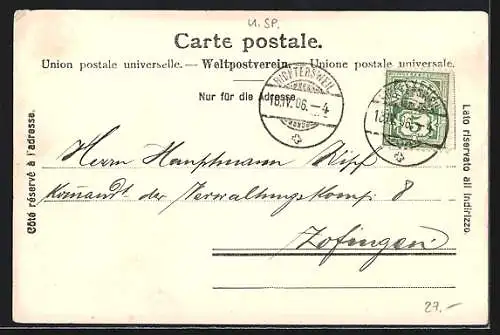 U. SP.
Carte postale.
Union postale universelle. — Weltpostverein. — Unione postale universale.
Nur für die Adresse.
RICHTERSWEIL
18.IV.06. — 4
RICHTERSWEIL
18.IV.06.
5
Côté réservé à l'adresse.
Lato riservato all' indirizzo.
Herrn Hauptmann
Komandt der Verwaltungskomp. 8
Zofingen
27.-